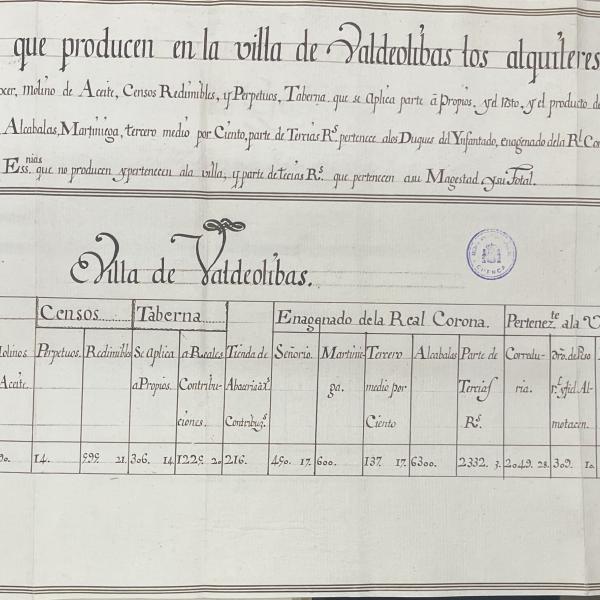 que producen en la villa de Valdeolibas los alquileres
ocer, Molino de Aceite, Censos Redimibles, y Perpetuos, Taberna que se aplica parte á Propios, y el resto, y el producto de
Alcabalas, Martiniega, tercero medio por Ciento, parte de Tercias Rs. pertenece a los Duques del Ynfantado, enagenado de la Rl. Co
Essnias. que no producen y pertenecen ala villa, y parte de tercias Rs. que pertenecen asu Magestad y su Total.
Villa de Valdeolibas.
CUENCA
Censos Taberna Enagenado dela Real Corona. Perteneze. ala V
Molinos Perpetuos. Redimibles Se aplica a Reales Tienda de Señorio. Martinie- Tercero Alcabalas Parte de Corredu-
Aceite. a Propios. Contribu- ga. medio por Tercias ria.
ciones. Contribuzs. Ciento Rs. motacen.
90. 14. 595. 21. 306. 14. 1225. 20. 216. 450. 17. 600. 137. 17. 6300. 2332. 3. 2049. 28. 309. 10.